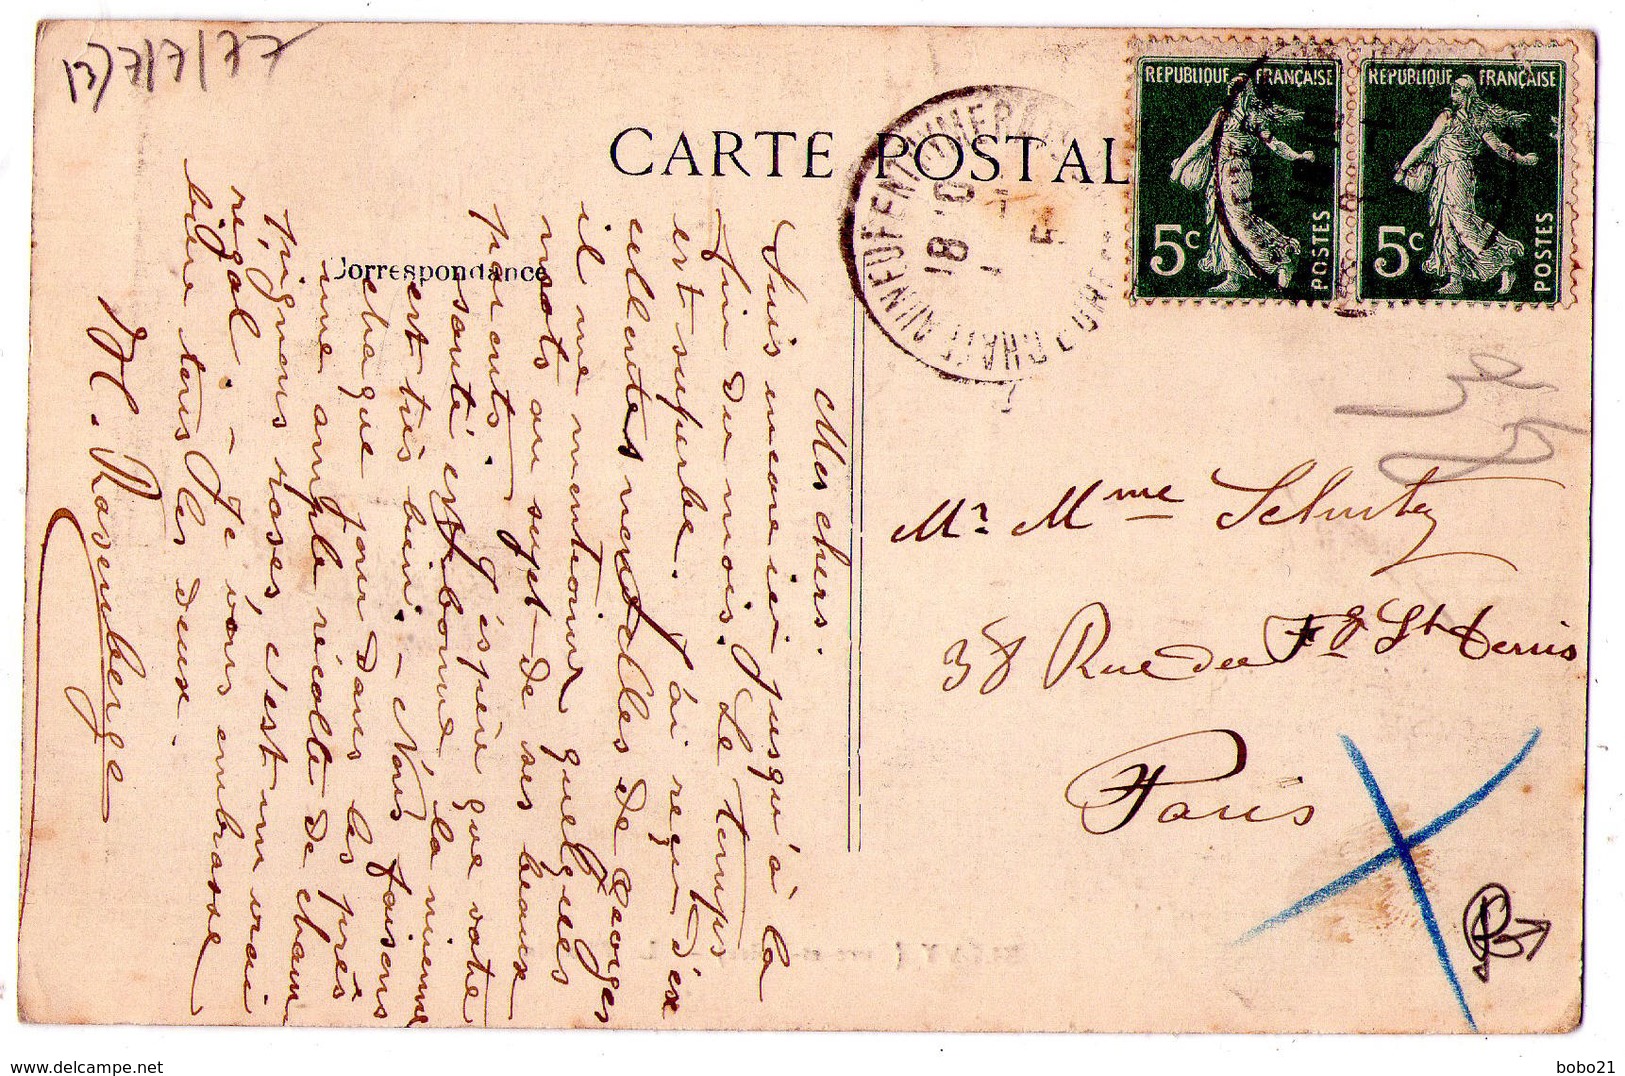 13/7/7/77
CARTE POSTALE
Correspondance
RÉPUBLIQUE FRANÇAISE
5c
POSTES
RÉPUBLIQUE FRANÇAISE
5c
POSTES
CHATEAUNEUF EN THYMERAIS
18
EURE
Mes chers.
Suis encore ici jusqu'à la
fin du mois. Le temps
est superbe. J'ai reçu d'ex
cellentes nouvelles de Georges
il me mentionne quelques
mots au sujet de ses beaux
parents. J'espère que votre
santé est bonne, la mienne
est très bien. - Nous faisons
chaque jour dans les près
une ample récolte de cham
pignons roses, c'est un vrai
régal. - Je vous embrasse
bien tous les deux.
H. Rosenberge
Mr Mme Schustey
38 Rue du Fg St Denis
Paris
bobo21